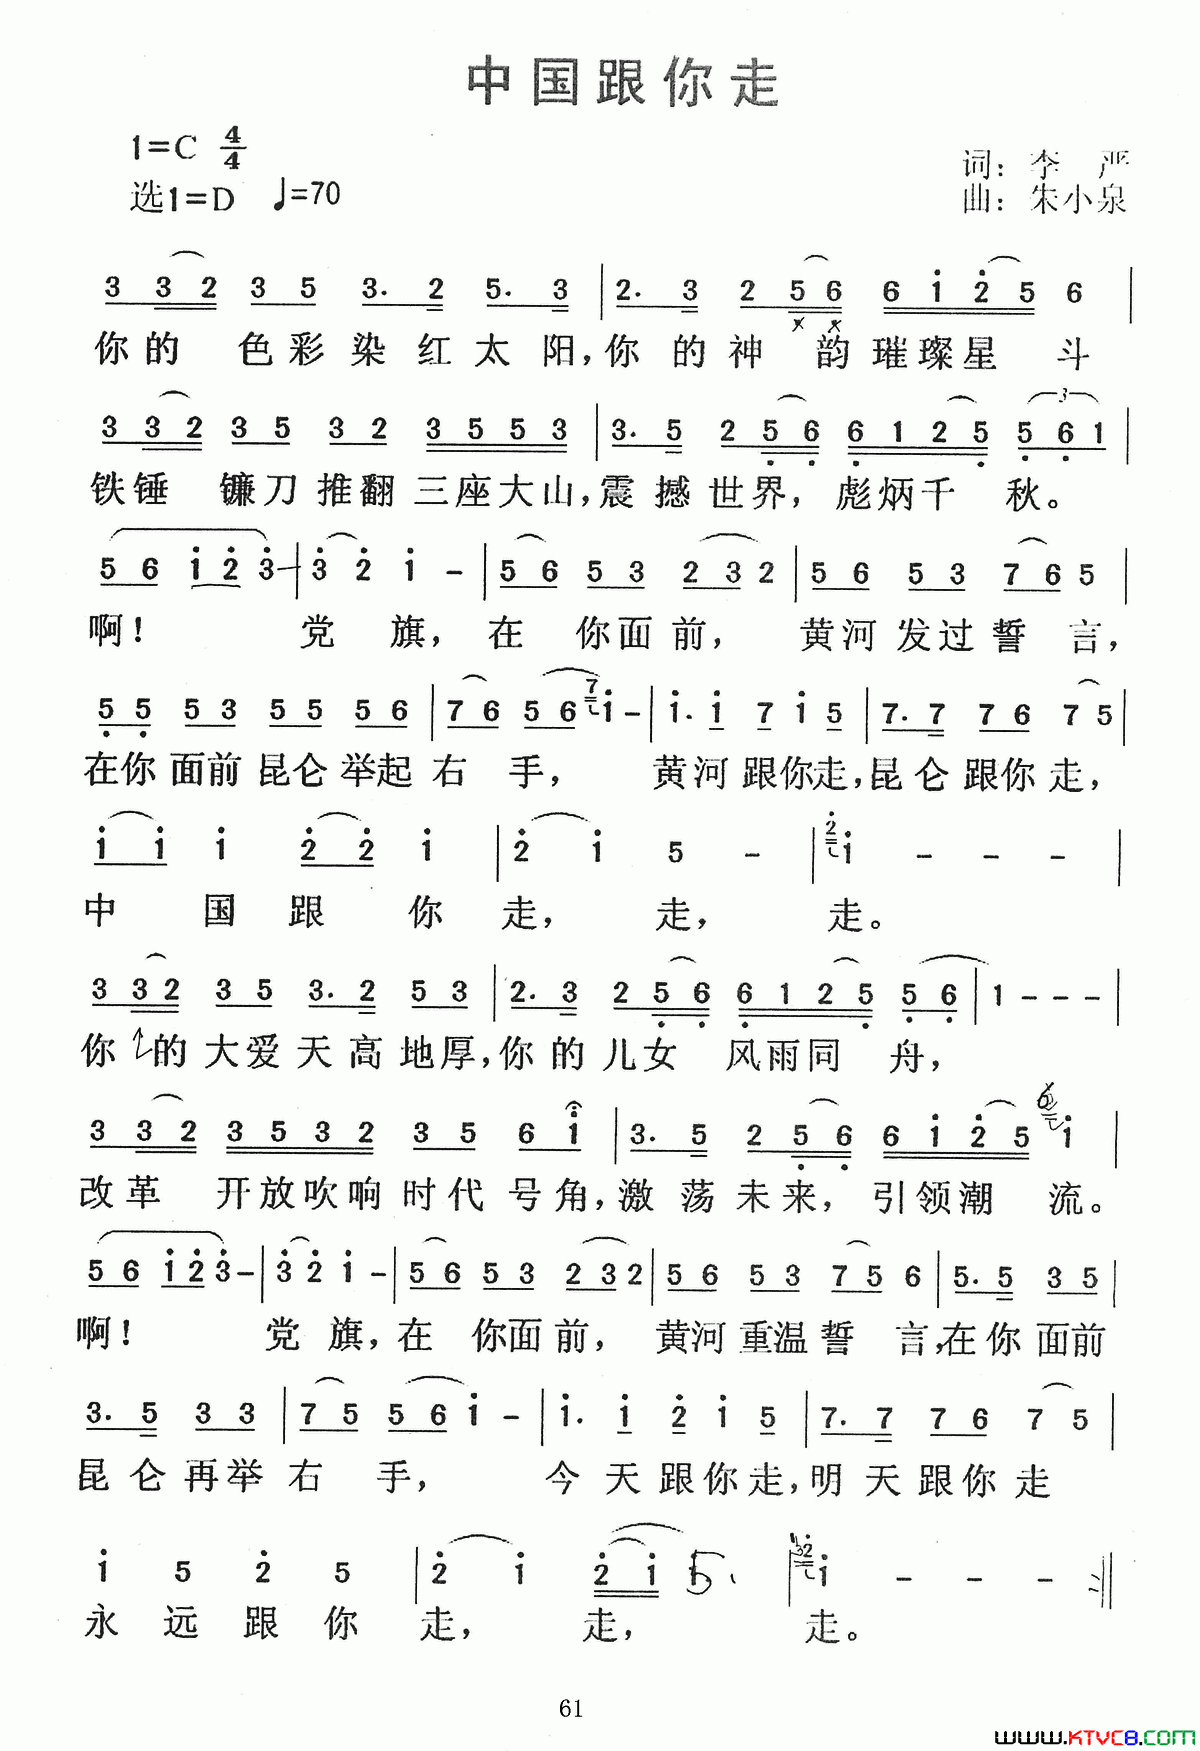 中国跟你走
1=C 4/4
词：李 严
选1=D ♩=70
曲：朱小泉
3 3 2 3 5 3. 2 5. 3 | 2. 3 2 5 6 6 1 2 5 6 |
你的 色彩染红太阳，你的神 韵璀璨星 斗
3 3 2 3 5 3 2 3 5 5 3 | 3. 5 2 5 6 6 1 2 5 5 6 1 |
铁锤 镰刀推翻三座大山，震撼世界，彪炳千 秋。
5 6 1 2 3 | 3 2 1 - | 5 6 5 3 2 3 2 | 5 6 5 3 7 6 5 |
啊！ 党 旗，在 你面前， 黄河发过誓 言，
5 5 5 3 5 5 5 6 | 7 6 5 6 7 1 - | 1. 1 7 1 5 | 7. 7 7 6 7 5 |
在你面前昆仑举起右 手， 黄河跟你走，昆仑跟你走，
1 1 1 2 2 1 | 2 1 5 - | 2 1 - - - |
中 国 跟 你 走， 走， 走。
3 3 2 3 5 3. 2 5 3 | 2. 3 2 5 6 6 1 2 5 5 6 | 1 - - - |
你 的大爱天高地厚，你的儿女 风雨同 舟，
3 3 2 3 5 3 2 3 5 6 1 | 3. 5 2 5 6 6 1 2 5 6 1 |
改革 开放吹响时代号角，激荡未来，引领潮 流。
5 6 1 2 3 - | 3 2 1 - | 5 6 5 3 2 3 2 | 5 6 5 3 7 5 6 | 5. 5 3 5 |
啊！ 党 旗，在 你面前， 黄河重温誓 言，在你面前
3. 5 3 3 | 7 5 5 6 1 - | 1. 1 2 1 5 | 7. 7 7 6 7 5 |
昆仑再举右 手， 今天跟你走，明天跟你走
1 5 2 5 | 2 1 2 1 5 | 3 2 1 - - - :||
永 远 跟 你 走， 走， 走。
61
www.KTVC8.com